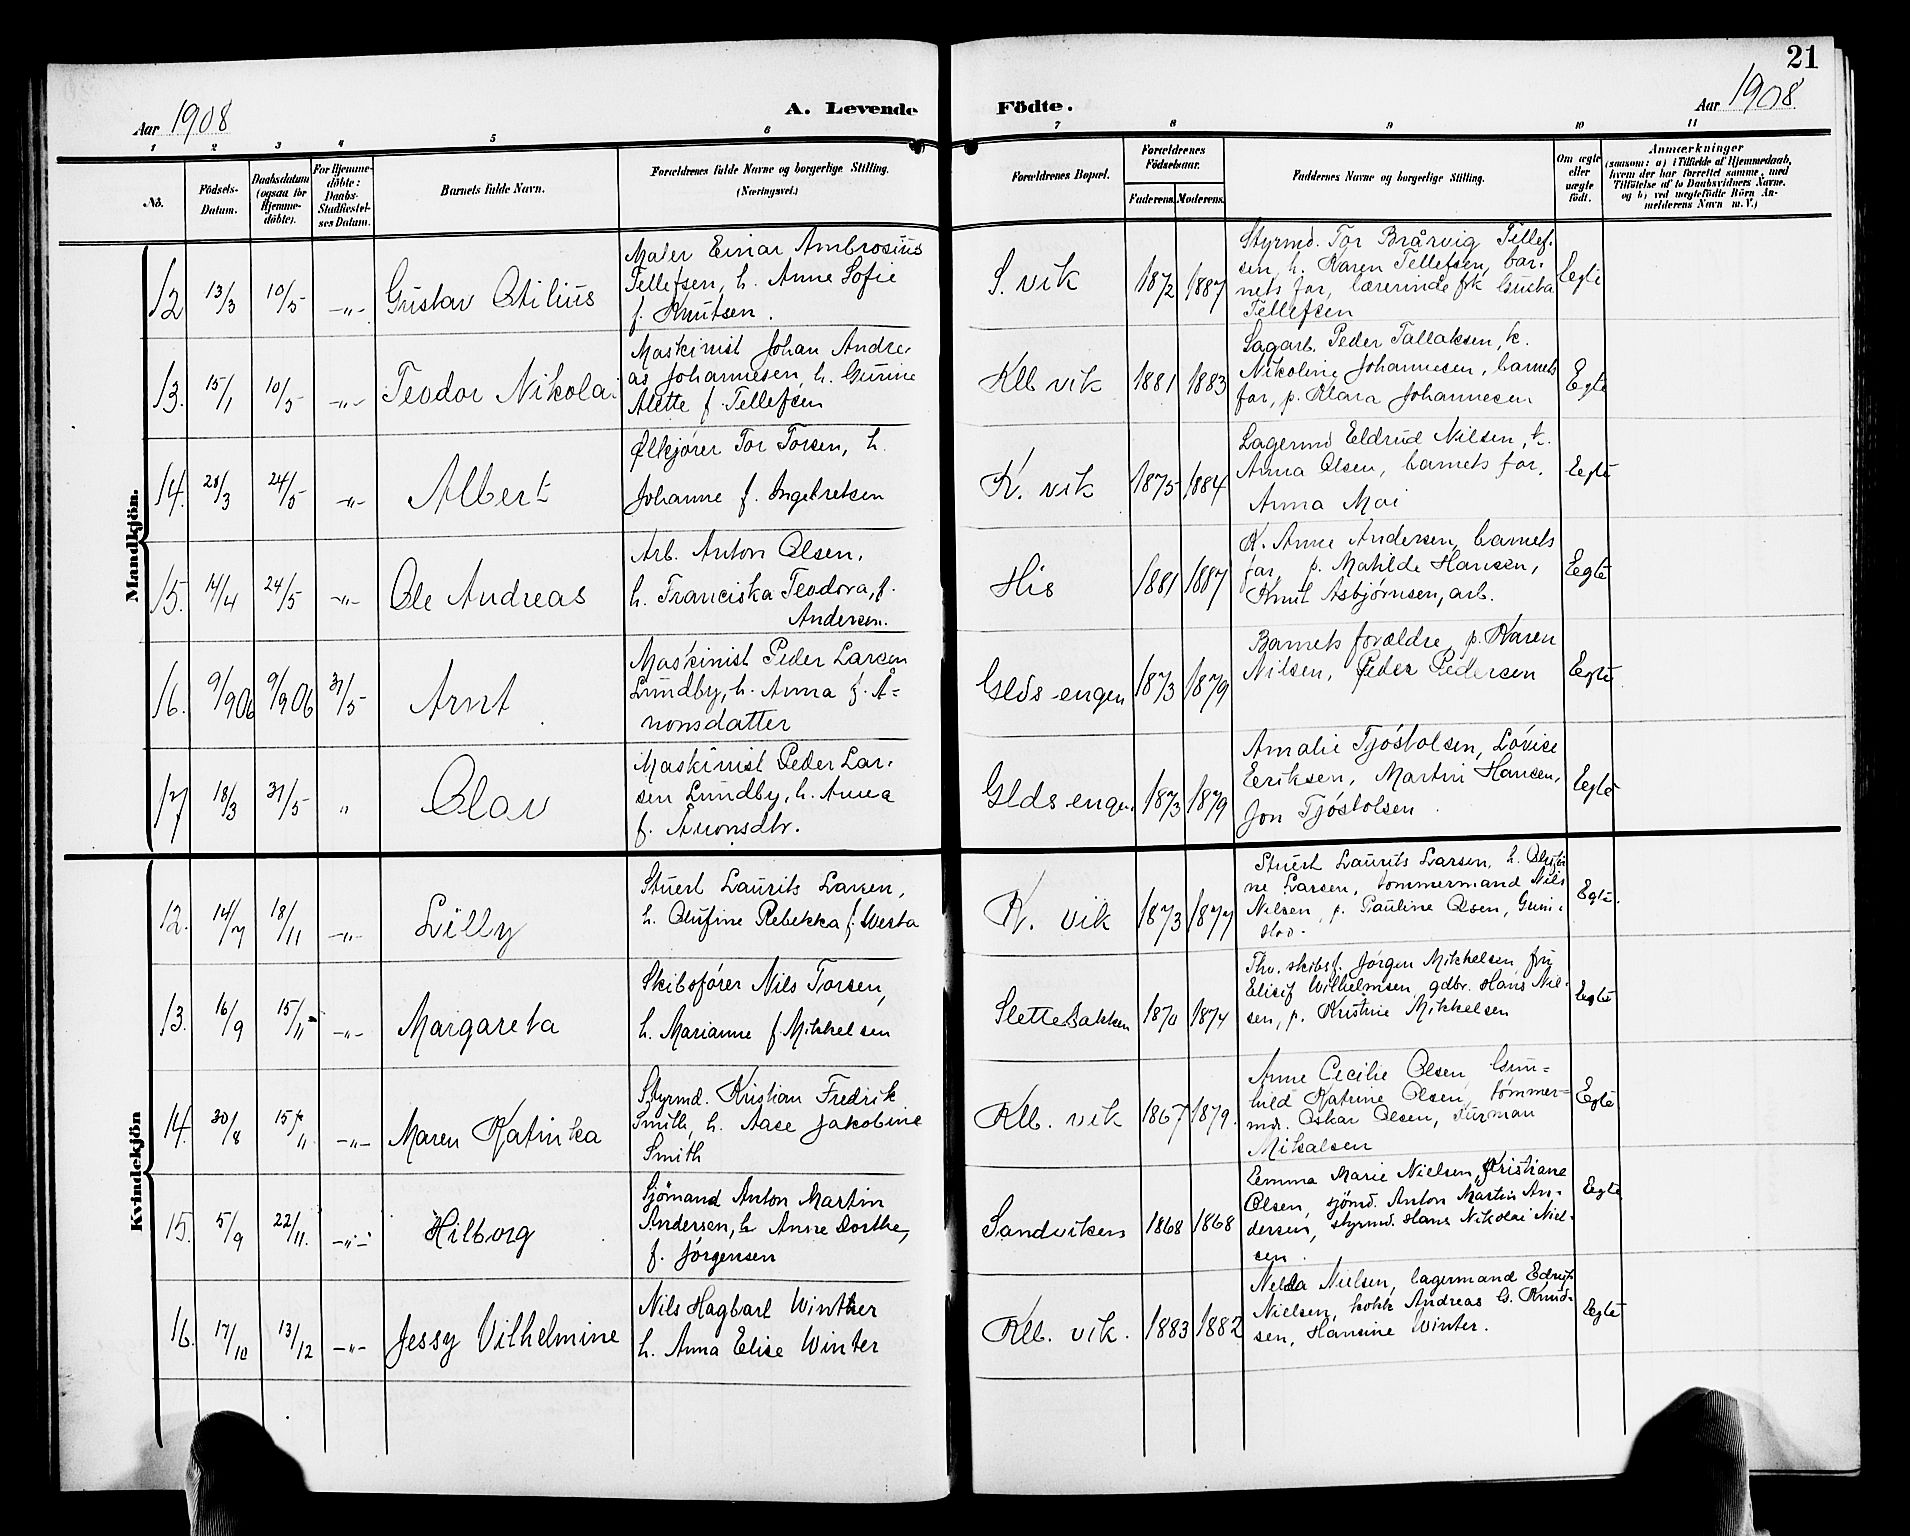 21
Aar 1908
A. Levende Födte.
Aar 1908
1 2 3 4 5 6 7 8 9 10 11
No.
Födsels-
Datum.
Daabsdatum
(ogsaa for
Hjemme-
döbte).
For Hjemme-
döbte:
Daabs-
Stadfæstel-
ses Datum.
Barnets fulde Navn.
Forældrenes fulde Navne og borgerlige Stilling.
(Næringsvei.)
Forældrenes Bopæl.
Forældrenes
Födselsaar.
Faderens. Moderens.
Faddernes Navne og borgerlige Stilling.
Om ægte
eller
uægte
födt.
Anmærkninger
(saasom: a) i Tilfælde af Hjemmedaab,
hvem der har forrettet samme, med
Tilföielse af to Daabsvidners Navne,
og b) ved uægtefödte Börn An-
melderens Navn m. V.)
Mandkjön.
12 13/3 10/5 -"- Gustav Otilius
Maler Einar Ambrosius
Tellefsen, h. Anne Sofie
f. Knutsen.
S. vik 1872 1887
Styrmd. Tor Brårvig Tellef-
sen, h. Karen Tellefsen, bar-
nets far, lærerinde frk Gusta
Tellefsen
Egte
13. 15/1 10/5 -"- Teodor Nikolai
Maskinist Johan Andre-
as Johannesen, h. Gurine
Alette f. Tellefsen
Klb vik 1881 1883
Sagarb. Peder Tallaksen, k.
Nikoline Johannesen, barnets
far, p. Klara Johannesen
Egte
14. 28/3 24/5 -"- Albert
Ølkjører Tor Torsen, h.
Johanne f. Ingebretsen
K. vik 1875 1884
Lagermd Eldrud Nilsen, k.
Anna Olsen, barnets far,
Anna Moi
Egte
15. 14/4 24/5 -"- Ole Andreas
Arb. Anton Olsen,
h. Franciska Teodora, f.
Andersen.
His 1881 1887
K. Anne Andersen, barnets
far, p. Mathilde Hansen,
Knut Asbjørnsen, arb.
Egte
16. 9/9 06 9/9 06 31/5 Arnt
Maskinist Peder Larsen
Lundby, h. Anna f. A-
nonsdatter
Glds-engen 1873 1879
Barnets forældre, p. Karen
Nilsen, Peder Pedersen
Egte
17 18/3 31/5 " Olav
Maskinist Peder Lar-
sen Lundby, h. Anna
f. Anonsdtr.
Glds engen 1873 1879
Amalie Tjøstolsen, Lovise
Eeriksen, Martin Hansen,
Jon Tjøstolsen
Egte
Kvindekjön
12. 14/7 18/11 -"- Lilly
Stuert Laurits Larsen,
h. Olufine Rebekka f. Westa
K. vik 1873 1877
Stuert Laurits Larsen, h. Olufi-
ne Larsen, tømmermand Nils
Nilsen, p. Pauline Olsen,
Egte.
13. 16/9 15/11 -"- Margareta
Skibsfører Nils Torsen,
h. Marianne f. Mikkelsen
Slettebakken 1870 1874
Fhv. skibsf. Jørgen Mikkelsen fru
Elisif Wilhelmsen, gdbr. Hans Nil-
sen, p. Kristine Mikkelsen
Egte
14. 30/8 15/11 -"- Maren Katinka
Styrmd. Kristian Fredrik
Smith, h. Aase Jakobine
Smith
Klb. vik 1867 1879.
Anne Cecilie Olsen, Gun-
hild Katrine Olsen, tømmer-
md. Oskar Olsen, Furman
Mikalsen
Egte
15. 5/9 22/11. -"- Hilborg
Sjömand Anton Martin
Andersen, h. Anne Dorthe,
f. Jørgensen
Sandviken 1868 1868
Emma Marie Nielsen, Kristiane
Olsen, sjömd. Anton Martin An-
dersen, styrmd. Hans Nikolai Niel-
sen.
Egte
16. 17/10 13/12 -"- Jessy Vilhelmine
Nils Hagbart Winther
h. Anna Elise Winter
Klb. vik. 1883 1882
Nelda Nielsen, lagermand
Nielsen, kokk Andreas G. Knud-
sen, Hansine Winter.
Egte